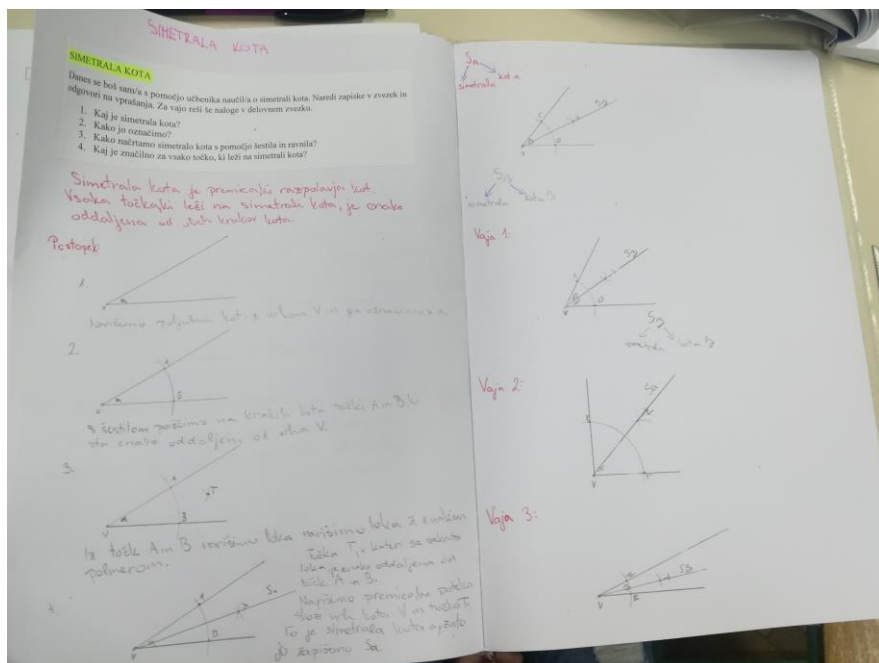 SIMETRALA KOTA
SIMETRALA KOTA
Danes se boš sam/a s pomočjo učbenika naučil/a o simetrali kota. Naredi zapiske v zvezek in
odgovori na vprašanja. Za vajo reši še naloge v delovnem zvezku.
1. Kaj je simetrala kota?
2. Kako jo označimo?
3. Kako načrtamo simetralo kota s pomočjo šestila in ravnila?
4. Kaj je značilno za vsako točko, ki leži na simetrali kota?
Simetrala kota je premica, ki razpolavlja kot.
Vsaka točka, ki leži na simetrali kota, je enako
oddaljena od obeh krakov kota.
Postopek
1.
V α
Narišemo poljuben kot z vrhom V in ga označimo z α.
2.
A
V α B
S šestilom poiščimo na krakih kota točki A in B, ki
sta enako oddaljeni od vrha V.
3.
A
T
V α B
Iz točk A in B narišimo loka narišimo loka z enakim
polmerom.
Točka T, v kateri se sekata
loka je enako oddaljena od
točk A in B.
4.
A
Sα
V
Narišemo premico, ki poteka
skoz vrh kota V in točko T.
To je simetrala kota α, zato
jo zapišemo Sα
Sα
simetrala kota α
C
Sβ
V D
Sβ
simetrala kota β
Vaja 1:
C
Sβ
V D
Sβ
simetrala kota β
Vaja 2:
V
Vaja 3:
Sβ
V